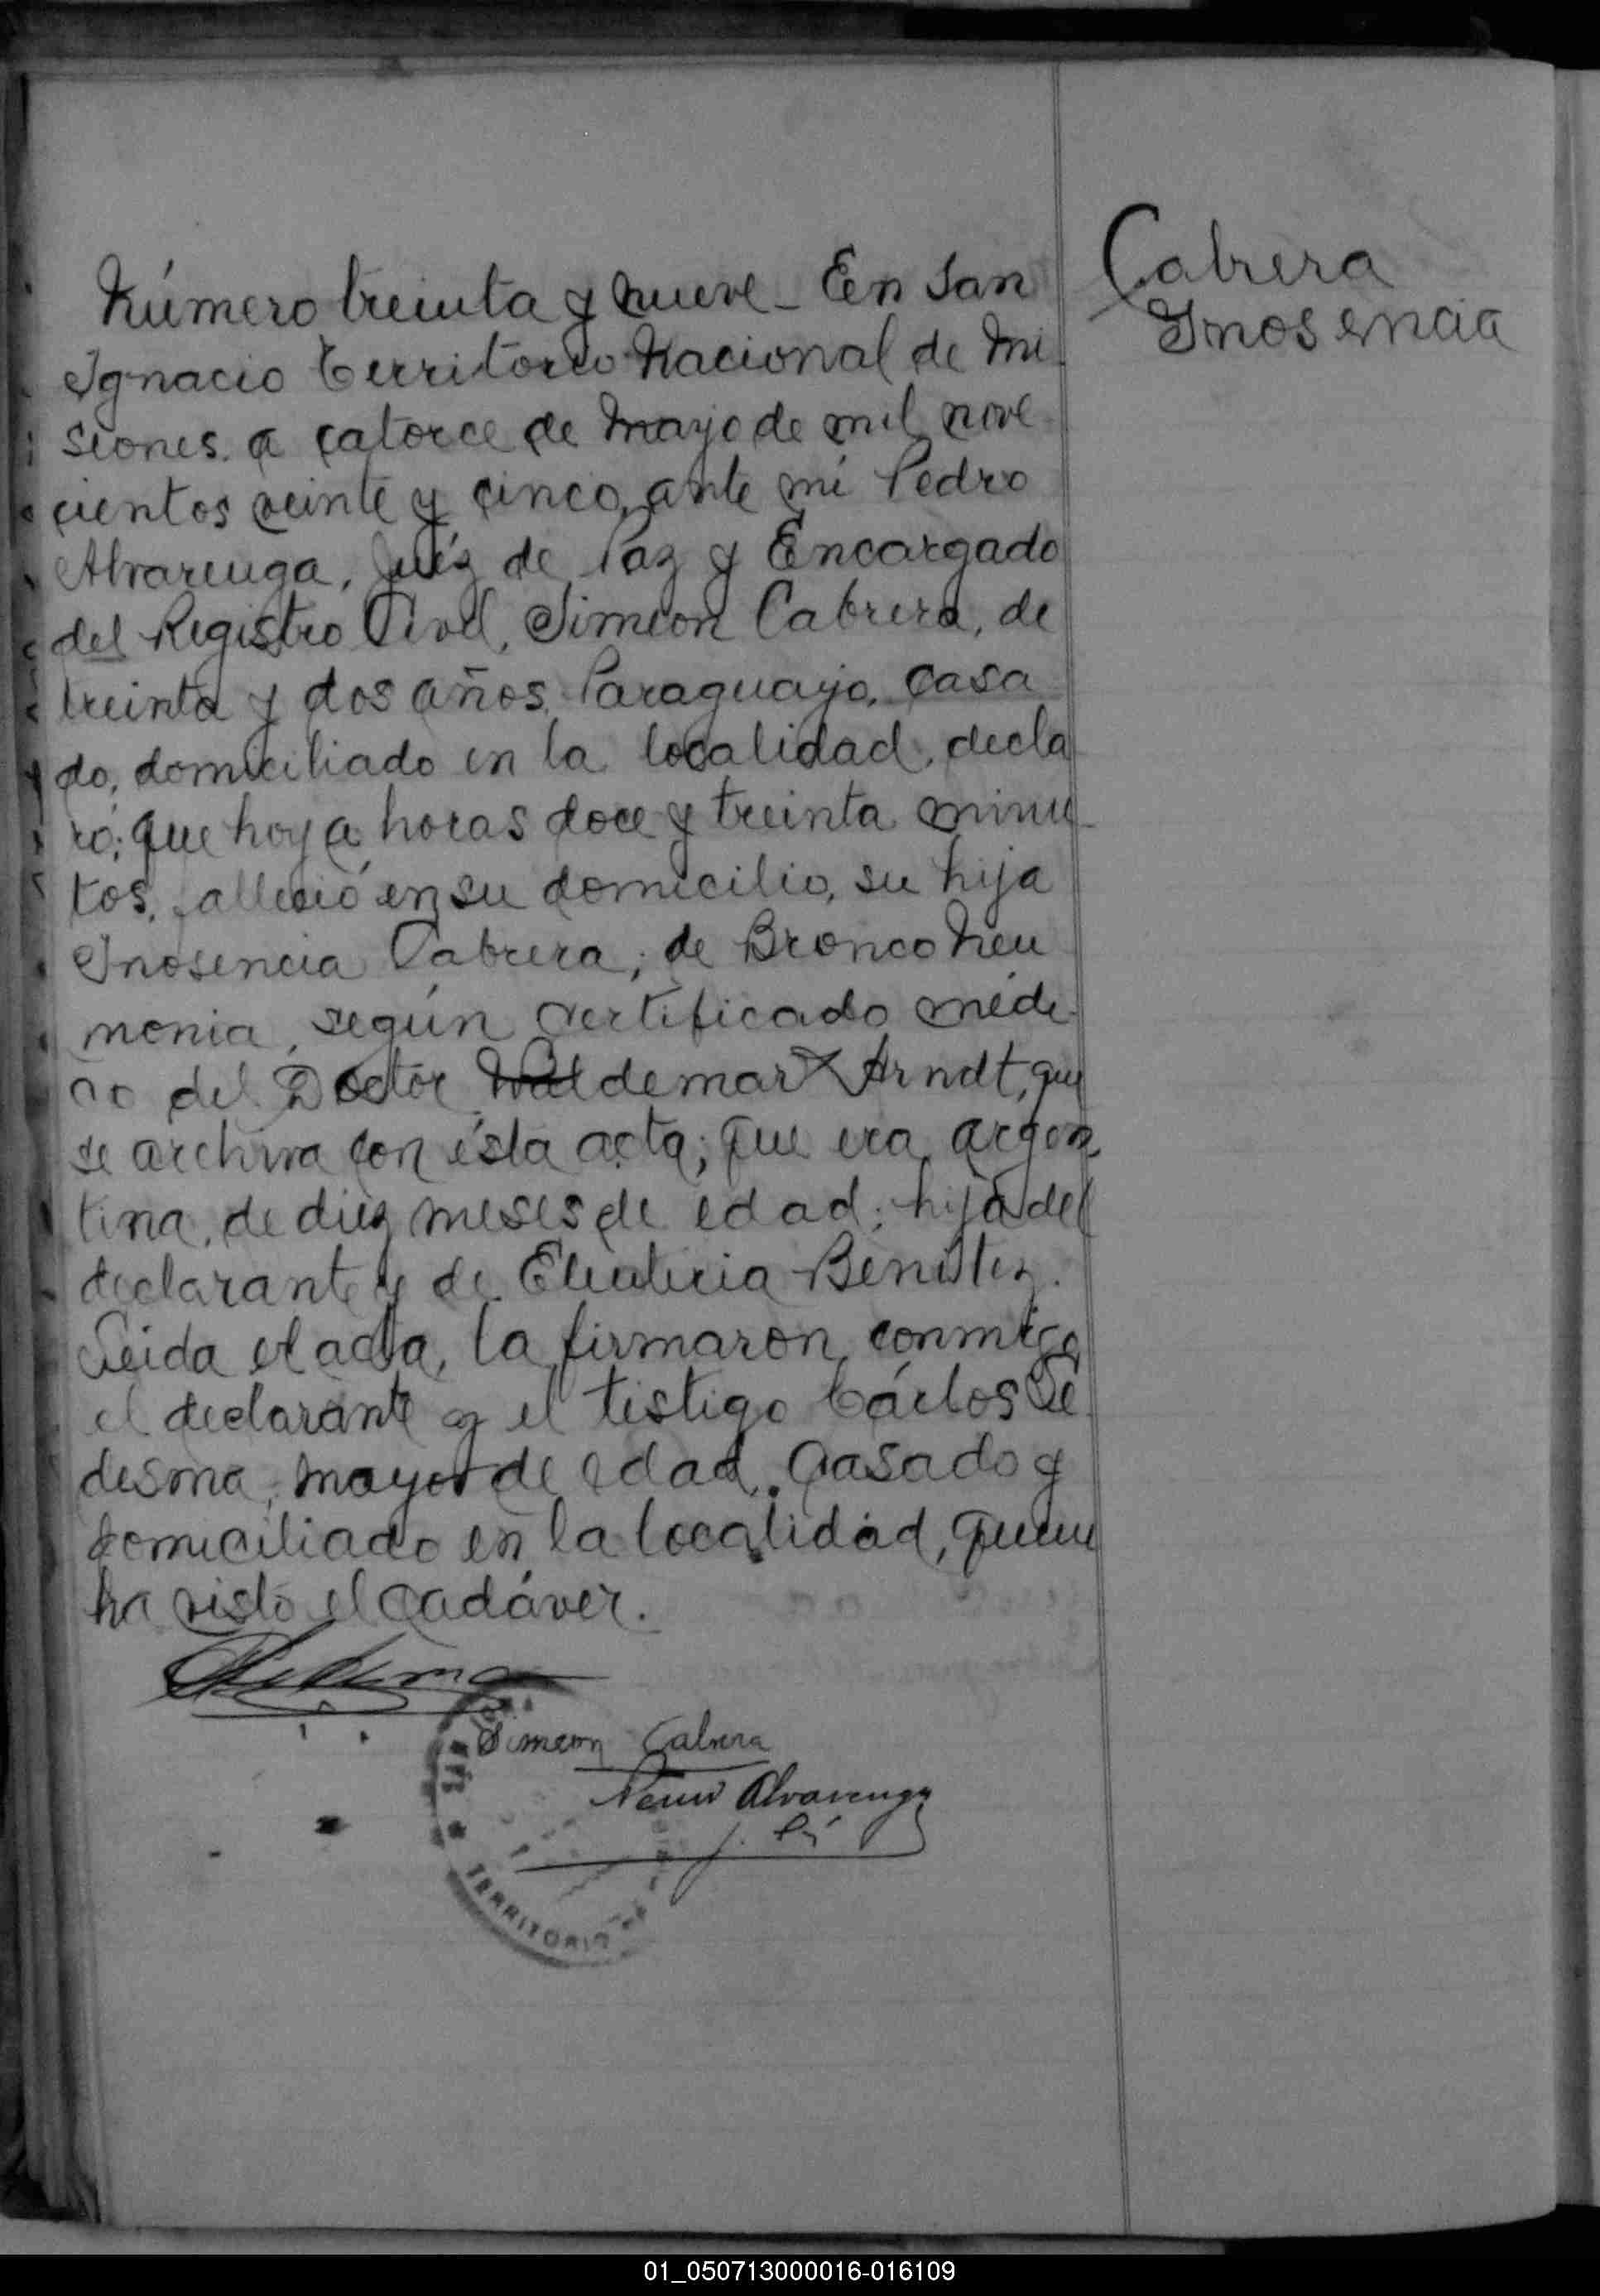 Cabrera
Inosencia
Número treinta y nueve - En San
Ignacio Territorio Nacional de Mi
siones. a catorce de Mayo de mil nove
cientos veinte y cinco, ante mi Pedro
Alvarenga, Juéz de Paz y Encargado
del Registro Civil, Simeon Cabrera, de
treinta y dos años, Paraguayo, casa
do, domiciliado en la localidad, decla
ró; que hoy a horas doce y treinta minu-
tos, falleció en su domicilio, su hija
Inosencia Cabrera; de Bronco Neu
monia, según certificado médi-
co del Doctor Waldemar Arndt, que
se archiva con ésta acta; que era argen
tina, de diez meses de edad; hija del
declarante y de Eleuteria Benitez.
Leida el acta, la firmaron conmigo
el declarante y el testigo Cárlos Le
desma, mayor de edad, casado y
domiciliado en la localidad, quien
ha visto el cadáver.
CLedesma
Simeon Cabrera
Pedro Alvarenga
J. P.
TERRITORIO
01_050713000016-016109